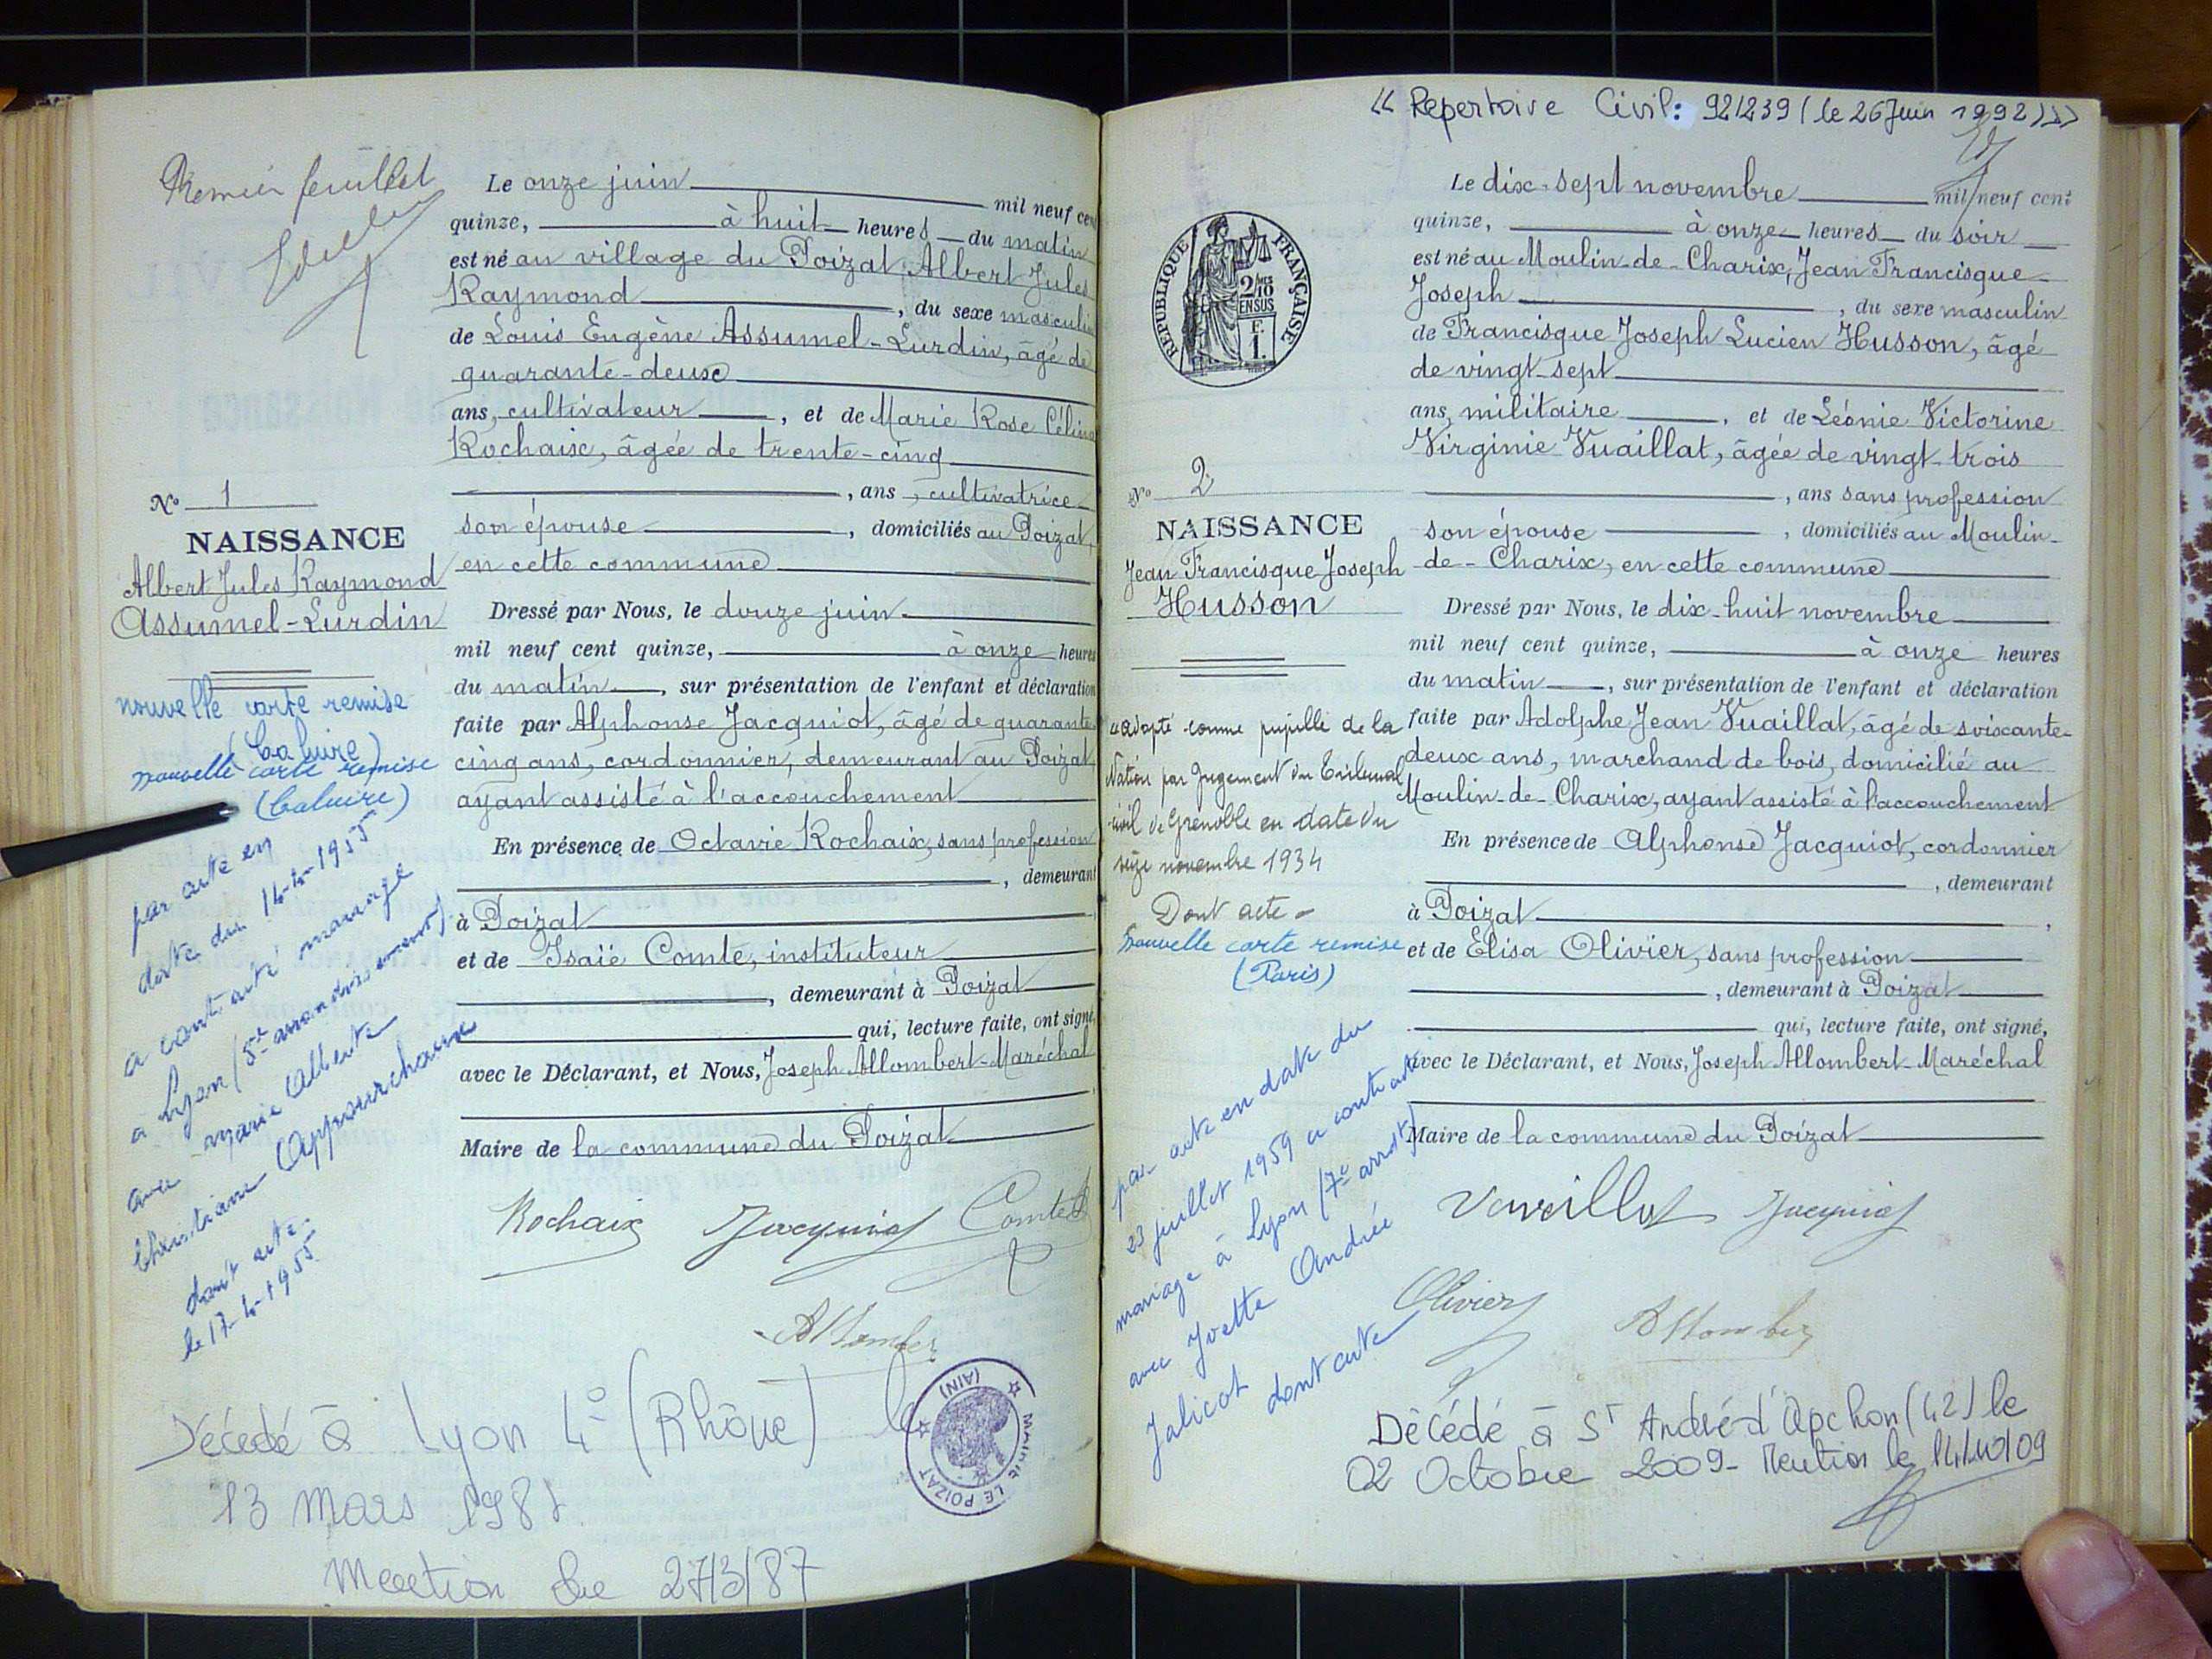 Premier feuillet
Le onze juin mil neuf cent
quinze, à huit heures du matin
est né au village du Poizat, Albert Jules
Raymond, du sexe masculin
de Louis Eugène Assumel-Lurdin, âgé de
quarante-deux
ans, cultivateur, et de Marie Rose Célina
Rochaix, âgée de trente-cinq
, ans, cultivatrice
son épouse, domiciliés au Poizat,
en cette commune
Dressé par Nous, le douze juin
mil neuf cent quinze, à onze heures
du matin, sur présentation de l'enfant et déclaration
faite par Alphonse Jacquiot, âgé de quarante
cinq ans, cordonnier, demeurant au Poizat,
ayant assisté à l'accouchement
En présence de Octavie Rochaix, sans profession
, demeurant
à Poizat
et de Isaïe Comte, instituteur
, demeurant à Poizat
qui, lecture faite, ont signé,
avec le Déclarant, et Nous, Joseph Allombert-Maréchal
Maire de la commune du Poizat
Rochaix Jacquiot Comte
Allomber
N° 1
NAISSANCE
Albert Jules Raymond
Assumel-Lurdin
nouvelle carte remise
(Caluire)
nouvelle carte remise
(Caluire)
par acte en
date du 16-4-1955
a contracté mariage
à Lyon (5e arrondissement)
avec Marie Alberte
Christiane
dont acte.
le 17-4-1955
Décédé à Lyon 4° (Rhône) le
13 Mars 1987
Mention le 27/3/87
MAIRIE LE POIZAT (AIN)
« Repertoire Civil: 92/239 (le 26 Juin 1992) »
REPUBLIQUE FRANÇAISE
2/10 EN SUS
F.
1.
Le dix-sept novembre mil neuf cent
quinze, à onze heures du soir
est né au Moulin-de-Charix, Jean Francisque
Joseph, du sexe masculin
de Francisque Joseph Lucien Husson, âgé
de vingt-sept
ans, militaire, et de Léonie Victorine
Virginie Vuaillat, âgée de vingt-trois
, ans sans profession
son épouse, domiciliés au Moulin-
de-Charix, en cette commune
Dressé par Nous, le dix-huit novembre
mil neuf cent quinze, à onze heures
du matin, sur présentation de l'enfant et déclaration
faite par Adolphe Jean Vuaillat, âgé de soixante-
deux ans, marchand de bois, domicilié au
Moulin-de-Charix, ayant assisté à l'accouchement
En présence de Alphonse Jacquiot, cordonnier
, demeurant
à Poizat,
et de Elisa Olivier, sans profession
, demeurant à Poizat
qui, lecture faite, ont signé,
avec le Déclarant, et Nous, Joseph Allombert-Maréchal
Maire de la commune du Poizat
Vuaillat Jacquiot
Olivier Allomber
N° 2
NAISSANCE
Jean Francisque Joseph
Husson
"adopté comme pupille de la
Nation par Jugement du Tribunal
civil de Grenoble en date du
seize novembre 1934
Dont acte
Nouvelle carte remise
(Paris)
par acte en date du
23 juillet 1959 a contracté
mariage à Lyon (7e arrdt)
avec Yvette Andrée
Jalicot dont acte
Décédé à St André-d'Apchon (42) le
02 Octobre 2009 - Mention le 14/10/09